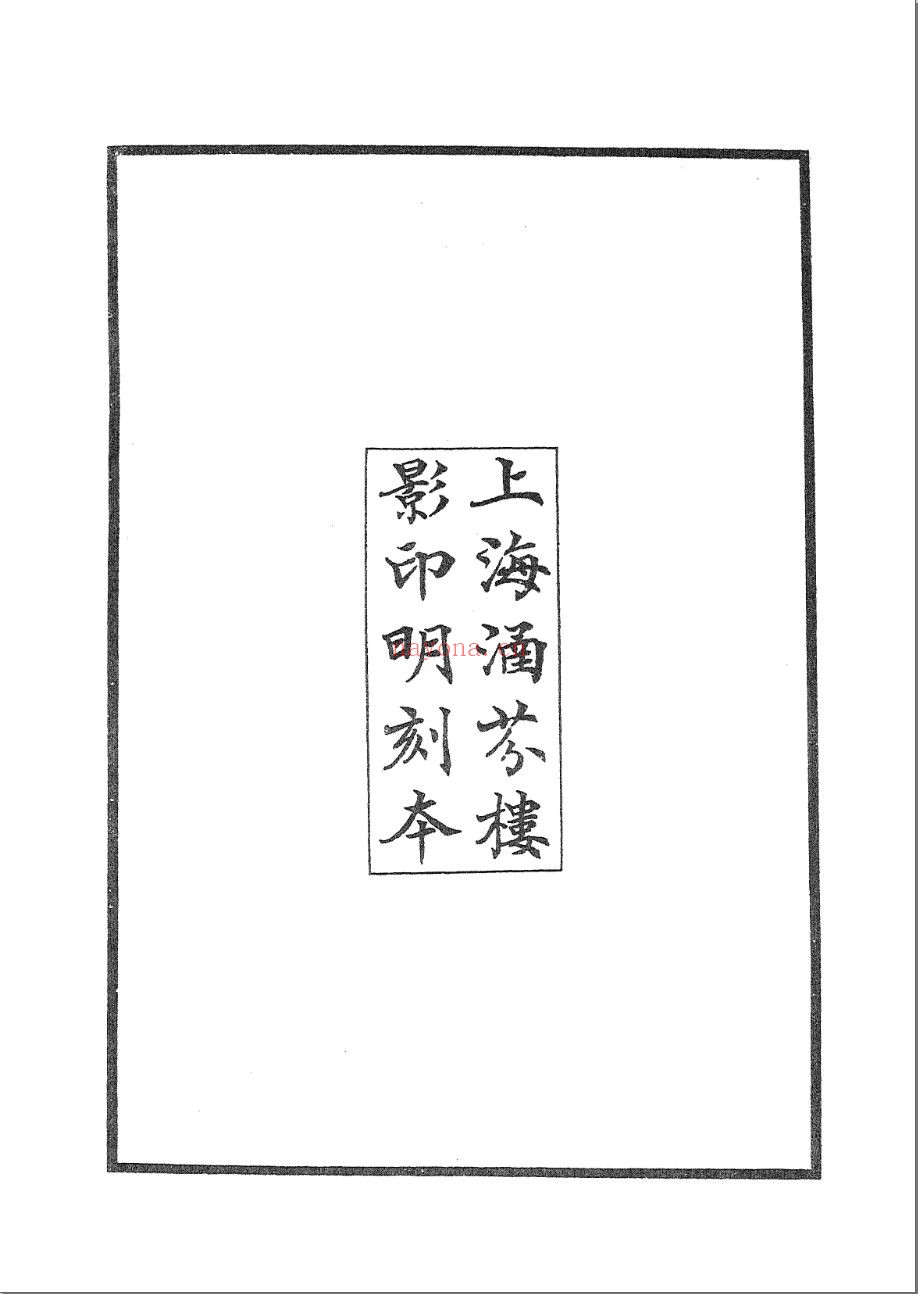 上海涵芬樓
影印明刻本
nayona.cn